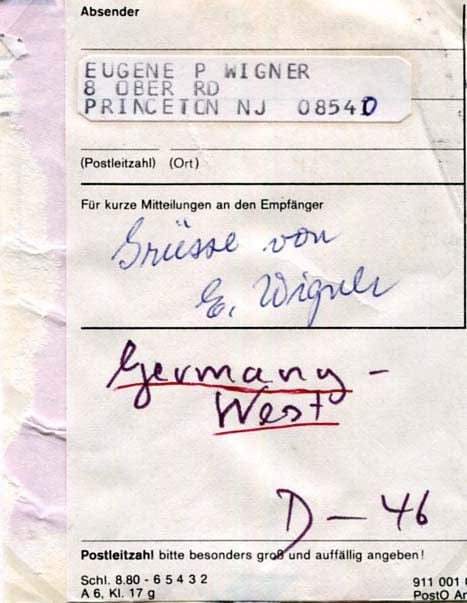 Absender
EUGENE P WIGNER
8 OBER RD
PRINCETON NJ 08540
(Postleitzahl) (Ort)
Für kurze Mitteilungen an den Empfänger
Grüsse von
E. Wigner
Germany -
West
D - 46
Postleitzahl bitte besonders groß und auffällig angeben!
Schl. 8.80 - 6 5 4 3 2
911 001
A 6, Kl. 17 g
PostO